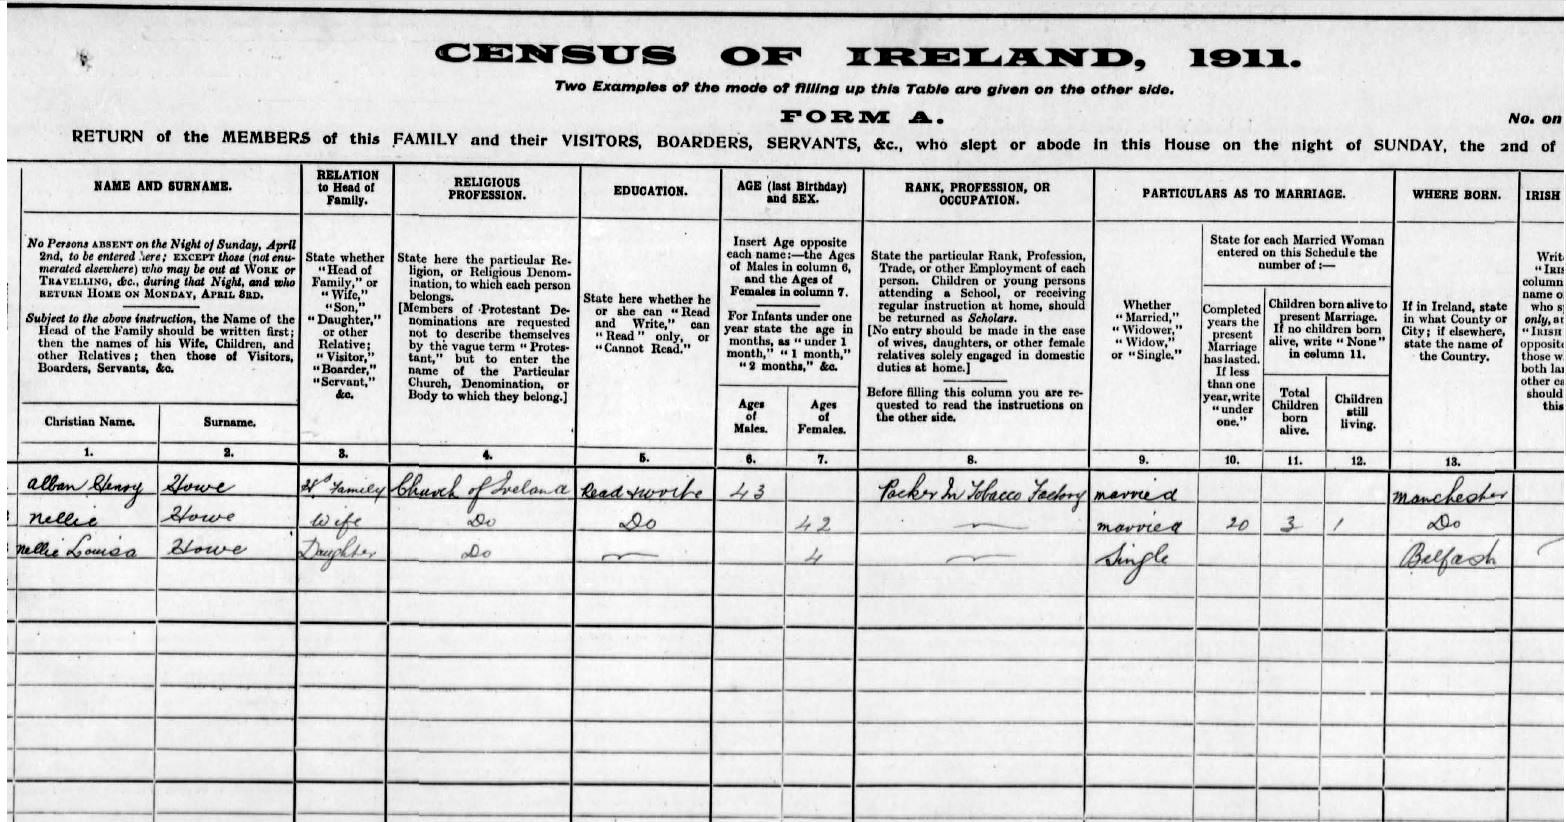 CENSUS OF IRELAND, 1911.
Two Examples of the mode of filling up this Table are given on the other side.
FORM A.
No. on
RETURN of the MEMBERS of this FAMILY and their VISITORS, BOARDERS, SERVANTS, &c., who slept or abode in this House on the night of SUNDAY, the 2nd of
NAME AND SURNAME.
No Persons ABSENT on the Night of Sunday, April
2nd, to be entered here; EXCEPT those (not enu-
merated elsewhere) who may be out at WORK or
TRAVELLING, &c., during that Night, and who
RETURN HOME ON MONDAY, APRIL 3RD.
Subject to the above instruction, the Name of the
Head of the Family should be written first;
then the names of his Wife, Children, and
other Relatives; then those of Visitors,
Boarders, Servants, &c.
Christian Name.
Surname.
RELATION
to Head of
Family.
State whether
"Head of
Family," or
"Wife,"
"Son,"
"Daughter,"
or other
Relative;
"Visitor,"
"Boarder,"
"Servant,"
&c.
RELIGIOUS
PROFESSION.
State here the particular Re-
ligion, or Religious Denom-
ination, to which each person
belongs.
[Members of Protestant De-
nominations are requested
not to describe themselves
by the vague term "Protes-
tant," but to enter the
name of the Particular
Church, Denomination, or
Body to which they belong.]
EDUCATION.
State here whether he
or she can "Read
and Write," can
"Read" only, or
"Cannot Read."
AGE (last Birthday)
and SEX.
Insert Age opposite
each name:—the Ages
of Males in column 6,
and the Ages of
Females in column 7.
For Infants under one
year state the age in
months, as "under 1
month," "1 month,"
"2 months," &c.
Ages
of
Males.
Ages
of
Females.
RANK, PROFESSION, OR
OCCUPATION.
State the particular Rank, Profession,
Trade, or other Employment of each
person. Children or young persons
attending a School, or receiving
regular instruction at home, should
be returned as Scholars.
[No entry should be made in the case
of wives, daughters, or other female
relatives solely engaged in domestic
duties at home.]
Before filling this column you are re-
quested to read the instructions on
the other side.
PARTICULARS AS TO MARRIAGE.
Whether
"Married,"
"Widower,"
"Widow,"
or "Single."
State for each Married Woman
entered on this Schedule the
number of:—
Completed
years the
present
Marriage
has lasted.
If less
than one
year, write
"under
one."
Children born alive to
present Marriage.
If no children born
alive, write "None"
in column 11.
Total
Children
born
alive.
Children
still
living.
WHERE BORN.
If in Ireland, state
in what County or
City; if elsewhere,
state the name of
the Country.
IRISH
Writ
"IRIS
column
name o
who s
only, a
"IRISH
opposit
those w
both la
other c
should
this
1. 2. 3. 4. 5. 6. 7. 8. 9. 10. 11. 12. 13.
Alban Henry Howe Hd Family Church of Ireland Read & write 43 Packer In Tobacco Factory married Manchester
Nellie Howe Wife Do Do 42 — married 20 3 1 Do
Nellie Louisa Howe Daughter Do — 4 — Single Belfast